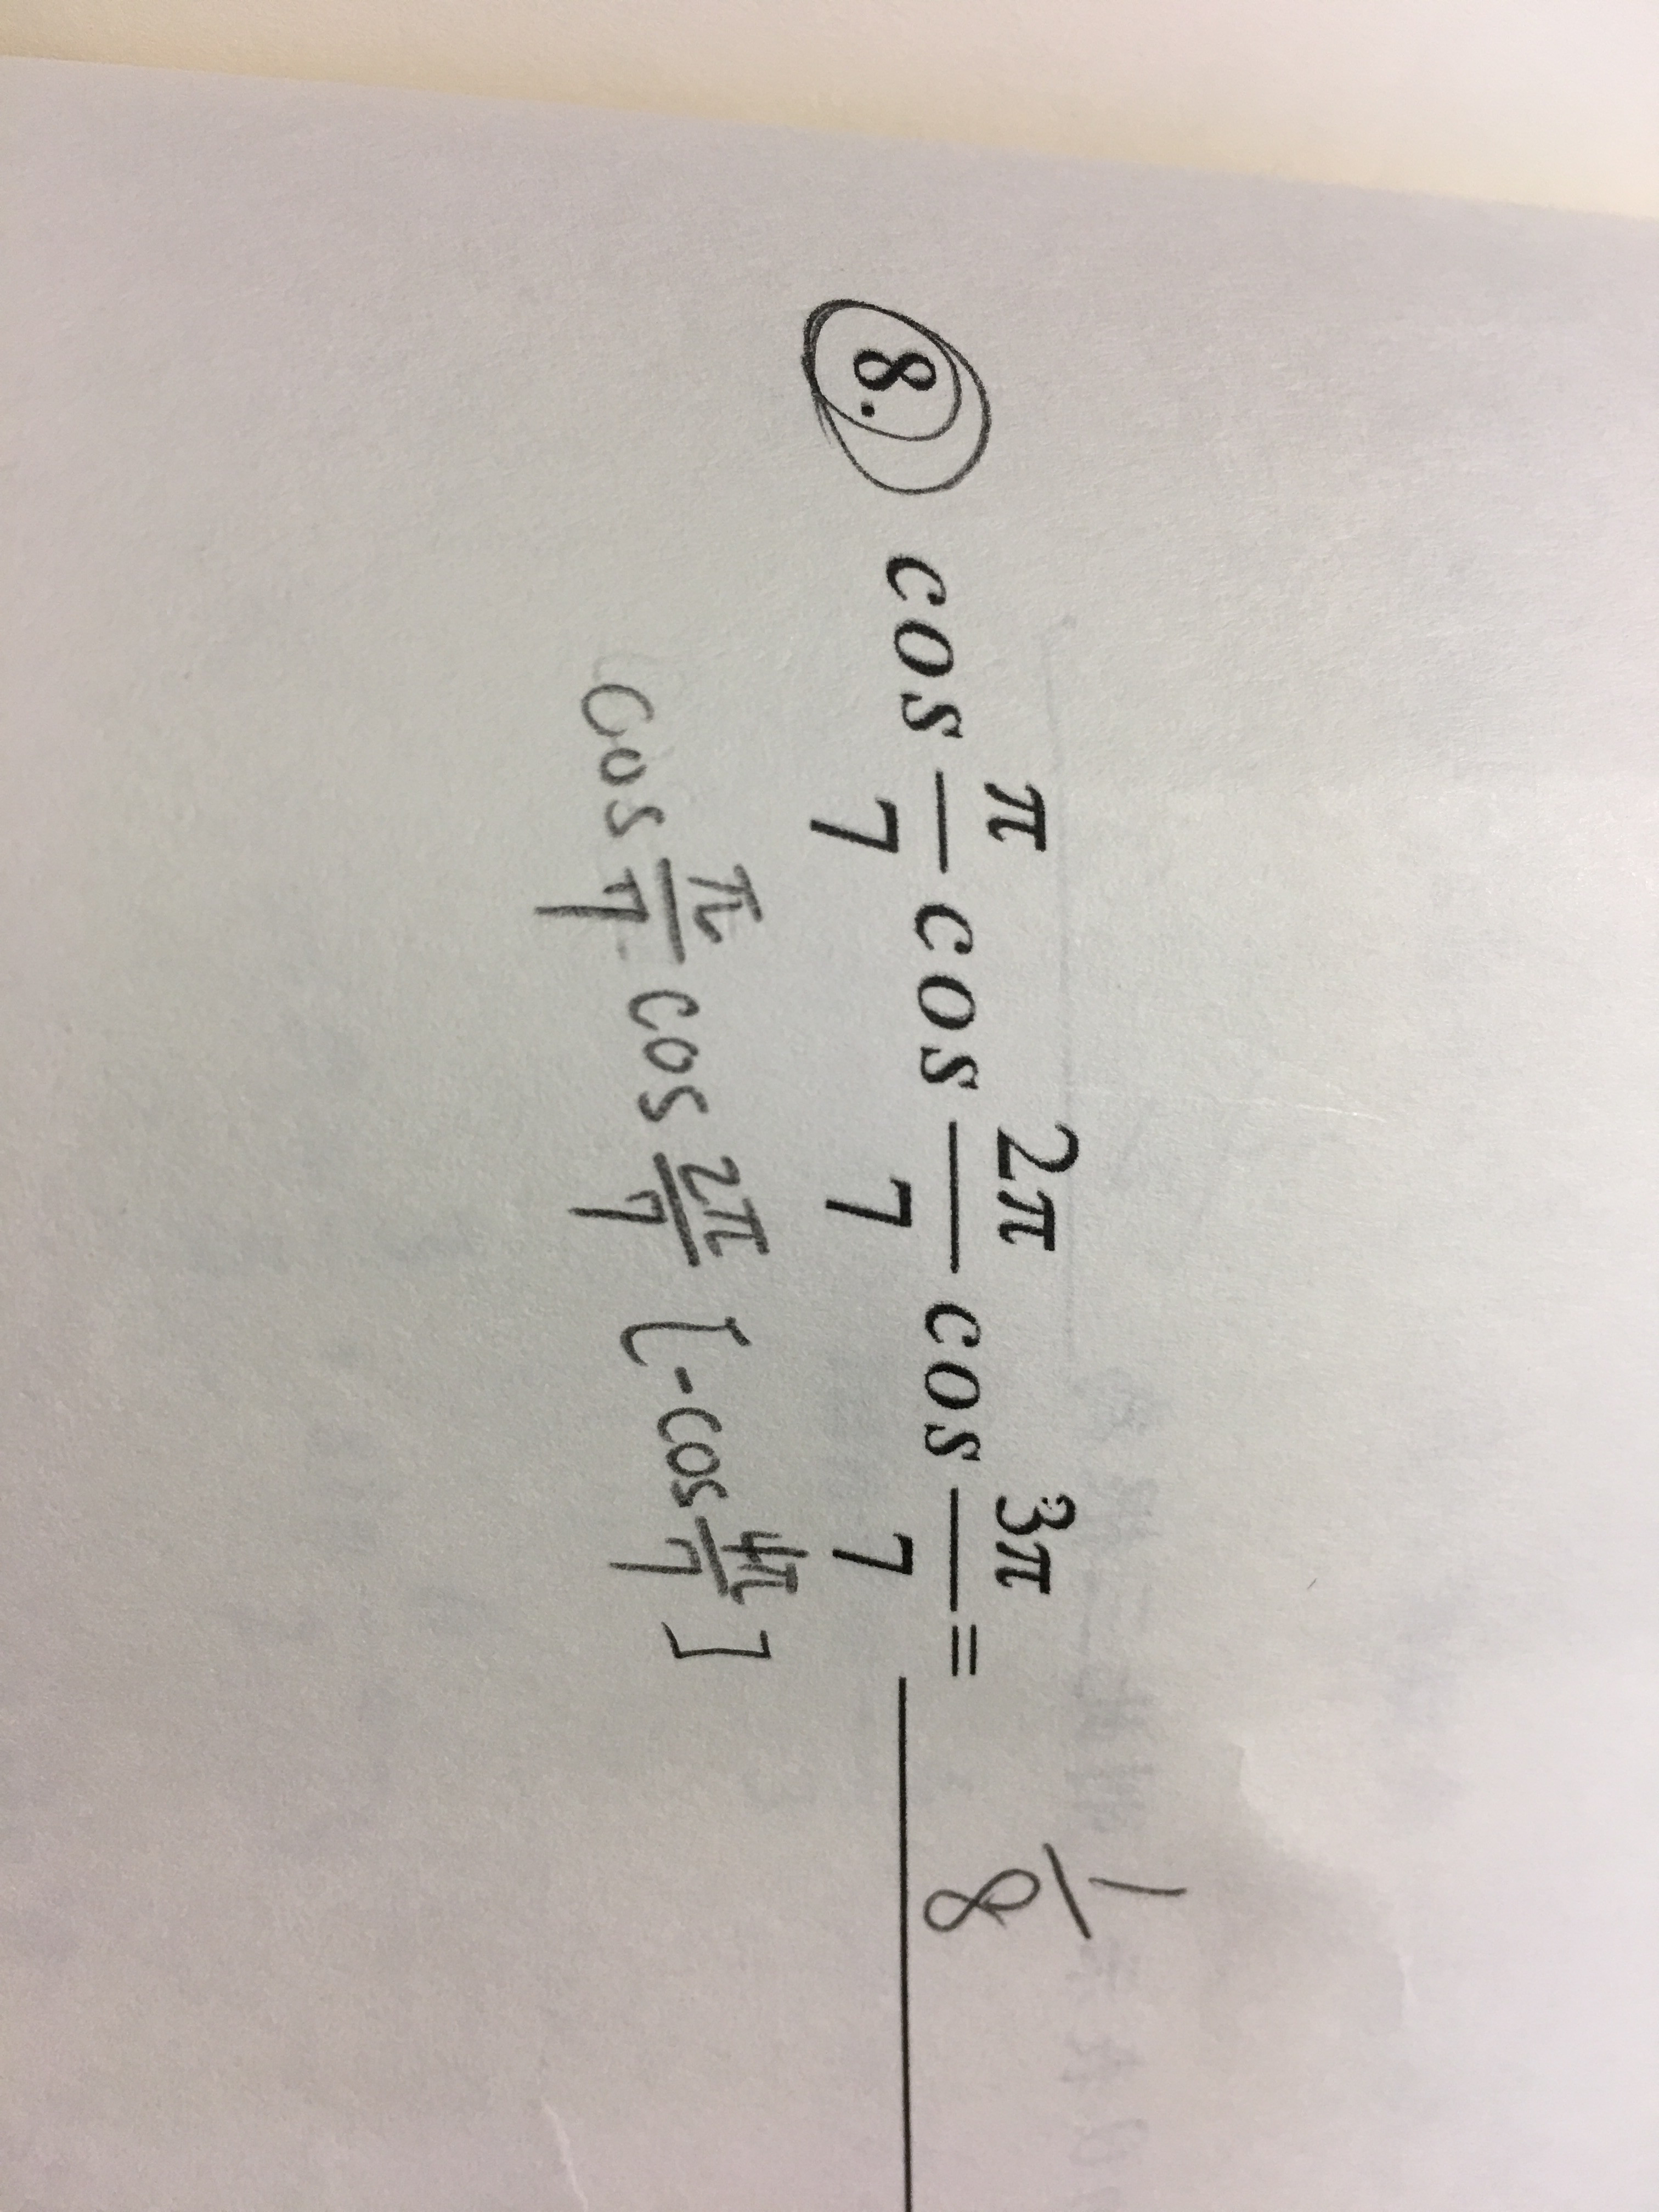 8. cos π/7 cos 2π/7 cos 3π/7 = 1/8
cos π/7 cos 2π/7 [-cos 4π/7]